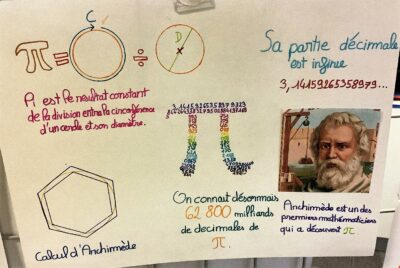 C
D
π = ÷
Sa partie décimale
est infinie
3,14159265358979...
Pi est le résultat constant
de la division entre la circonférence
d'un cercle et son diamètre.
Calcul d'Archimède
On connaît désormais
62 800 milliards
de décimales de
π.
Archimède est un des
premiers mathématiciens
qui a découvert π